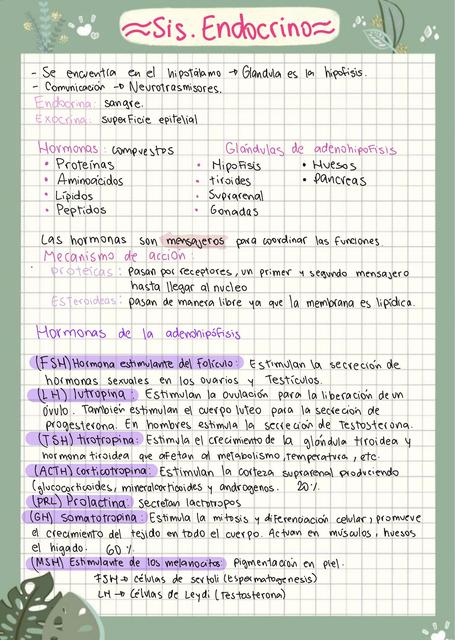 ≈Sis. Endocrino≈
- Se encuentra en el hipotálamo → Glandula es la hipofisis.
- Comunicación → Neurotrasmisores.
Endocrina: sangre.
Exocrina: superficie epitelial
Hormonas: compuestos
• Proteínas
• Aminoácidos
• Lípidos
• Peptidos
Glándulas de adenohipofisis
• Hipofisis
• tiroides
• Suprarenal
• Gonadas
• Huesos
• Pancreas
Las hormonas son mensajeros para coordinar las funciones
Mecanismo de acción:
proteícas: pasan por receptores, un primer y segundo mensajero
hasta llegar al nucleo
Esteroideas: pasan de manera libre ya que la membrana es lipídica.
Hormonas de la adenohipófisis
(FSH) Hormona estimulante del Folículo: Estimulan la secreción de
hormonas sexuales en los ovarios y Testículos.
(LH) lutropina: Estimulan la ovulación para la liberación de un
óvulo. También estimulan el cuerpo luteo para la secreción de
progesterona. En hombres estimula la secreción de Testosterona.
(TSH) tirotropina: Estimula el crecimiento de la glándula tiroidea y
hormona tiroidea que afetan al metabolismo, temperatura, etc.
(ACTH) corticotropina: Estimulan la corteza suprarenal produciendo
(glucocorticoides, mineralcorticoides y androgenos. 20%
(PRL) Prolactina: Secretan lactotropos
(GH) Somatotropina: Estimula la mitosis y diferenciación celular, promueve
el crecimiento del tejido en todo el cuerpo. Actuan en músculos, huesos
el higado. 60%
(MSH) Estimulante de los melanocitos: Pigmentación en piel.
FSH → células de sertoli (Espermatogenesis)
LH → Células de Leydi (Testosterona)